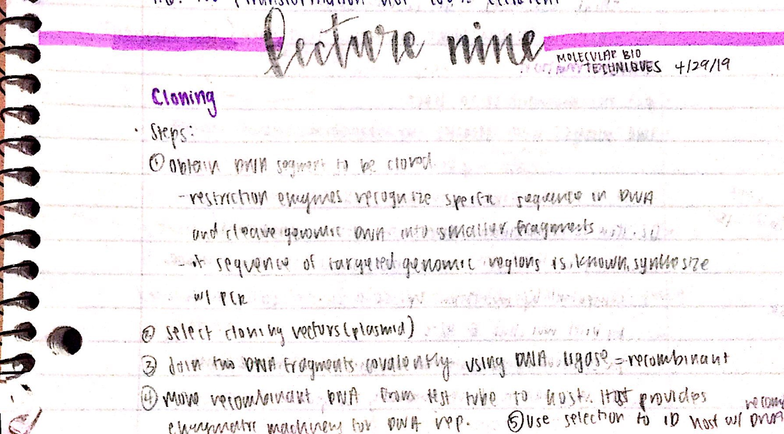 lecture nine
MOLECULAR BIO
TECHNIQUES 4/29/19
Cloning
· Steps:
① Obtain DNA segment to be cloned
- restriction enzymes recognize specific sequence in DNA
and cleave genomic DNA into smaller fragments
- if sequence of targeted genomic regions is known, synthesize
w/ PCR
② select cloning vectors (plasmid)
③ Join two DNA fragments covalently using DNA ligase = recombinant
④ Move recombinant DNA from test tube to host. Host provides
enzymatic machinery for DNA rep. ⑤ Use selection to ID host w/ DNA